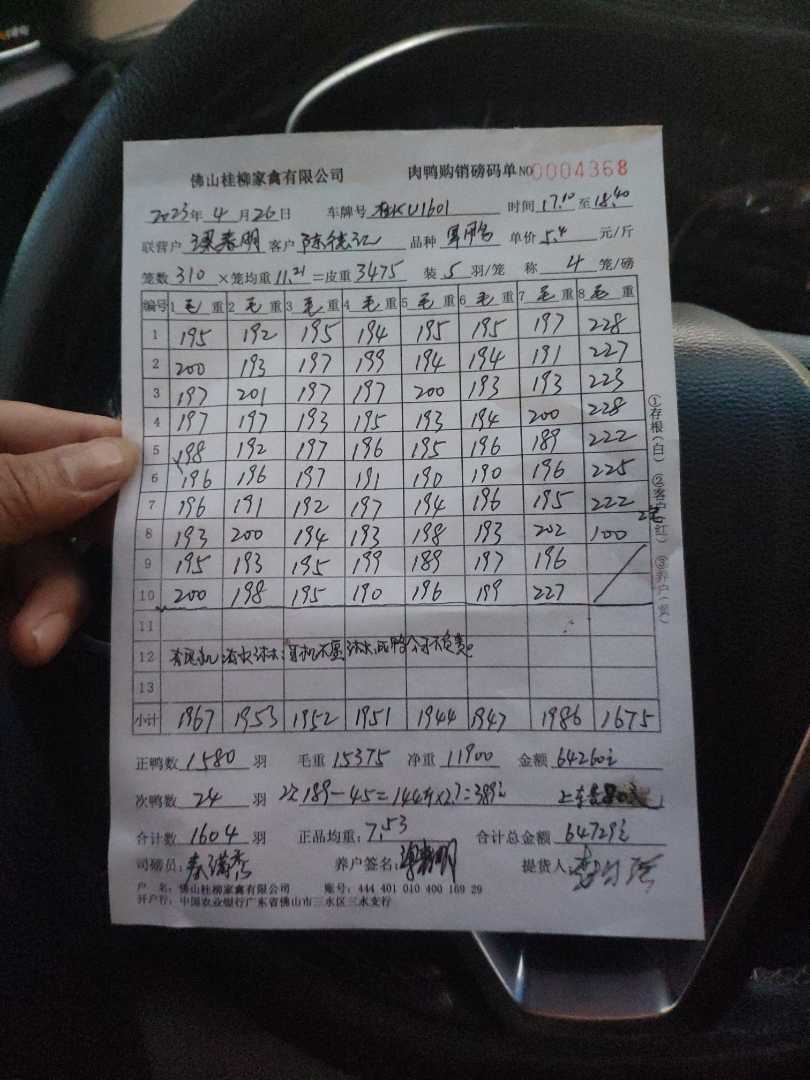 佛山桂柳家禽有限公司 肉鸭购销磅码单 NO 0004368
2023年 4 月 26 日 车牌号 桂KU1601 时间 17.10 至 18.40
联营户 客户 陈德江 品种 单价 5.4 元/斤
笼数 310 ×笼均重 11.21 =皮重 3475 装 5 羽/笼 称 4 笼/磅
编号 1 毛 重 2 毛 重 3 毛 重 4 毛 重 5 毛 重 6 毛 重 7 毛 重 8 毛 重
1 195 192 195 194 195 195 197 228
2 200 193 197 199 194 194 191 227
3 197 201 197 197 200 193 193 223
4 197 197 193 195 193 194 200 228
5 198 192 197 196 195 196 189 222
6 196 196 197 191 190 190 196 225
7 196 191 192 197 194 196 195 222
8 193 200 194 193 198 193 202 100
9 195 193 195 199 189 197 196
10 200 198 195 190 196 199 227
11
12
13
小计 1967 1953 1952 1951 1944 1947 1986 1675
正鸭数 1580 羽 毛重 15375 净重 11900 金额 64260元
次鸭数 24 羽 次189-45=144斤×2.7=389元 上车费80元
合计数 1604 羽 正品均重: 7.53 合计总金额 64729元
司磅员: 养户签名: 提货人:
户 名: 佛山桂柳家禽有限公司 账号: 444 401 010 400 169 29
开户行: 中国农业银行广东省佛山市三水区三水支行
①存根(白) ②客户(红) ③养户(黄)